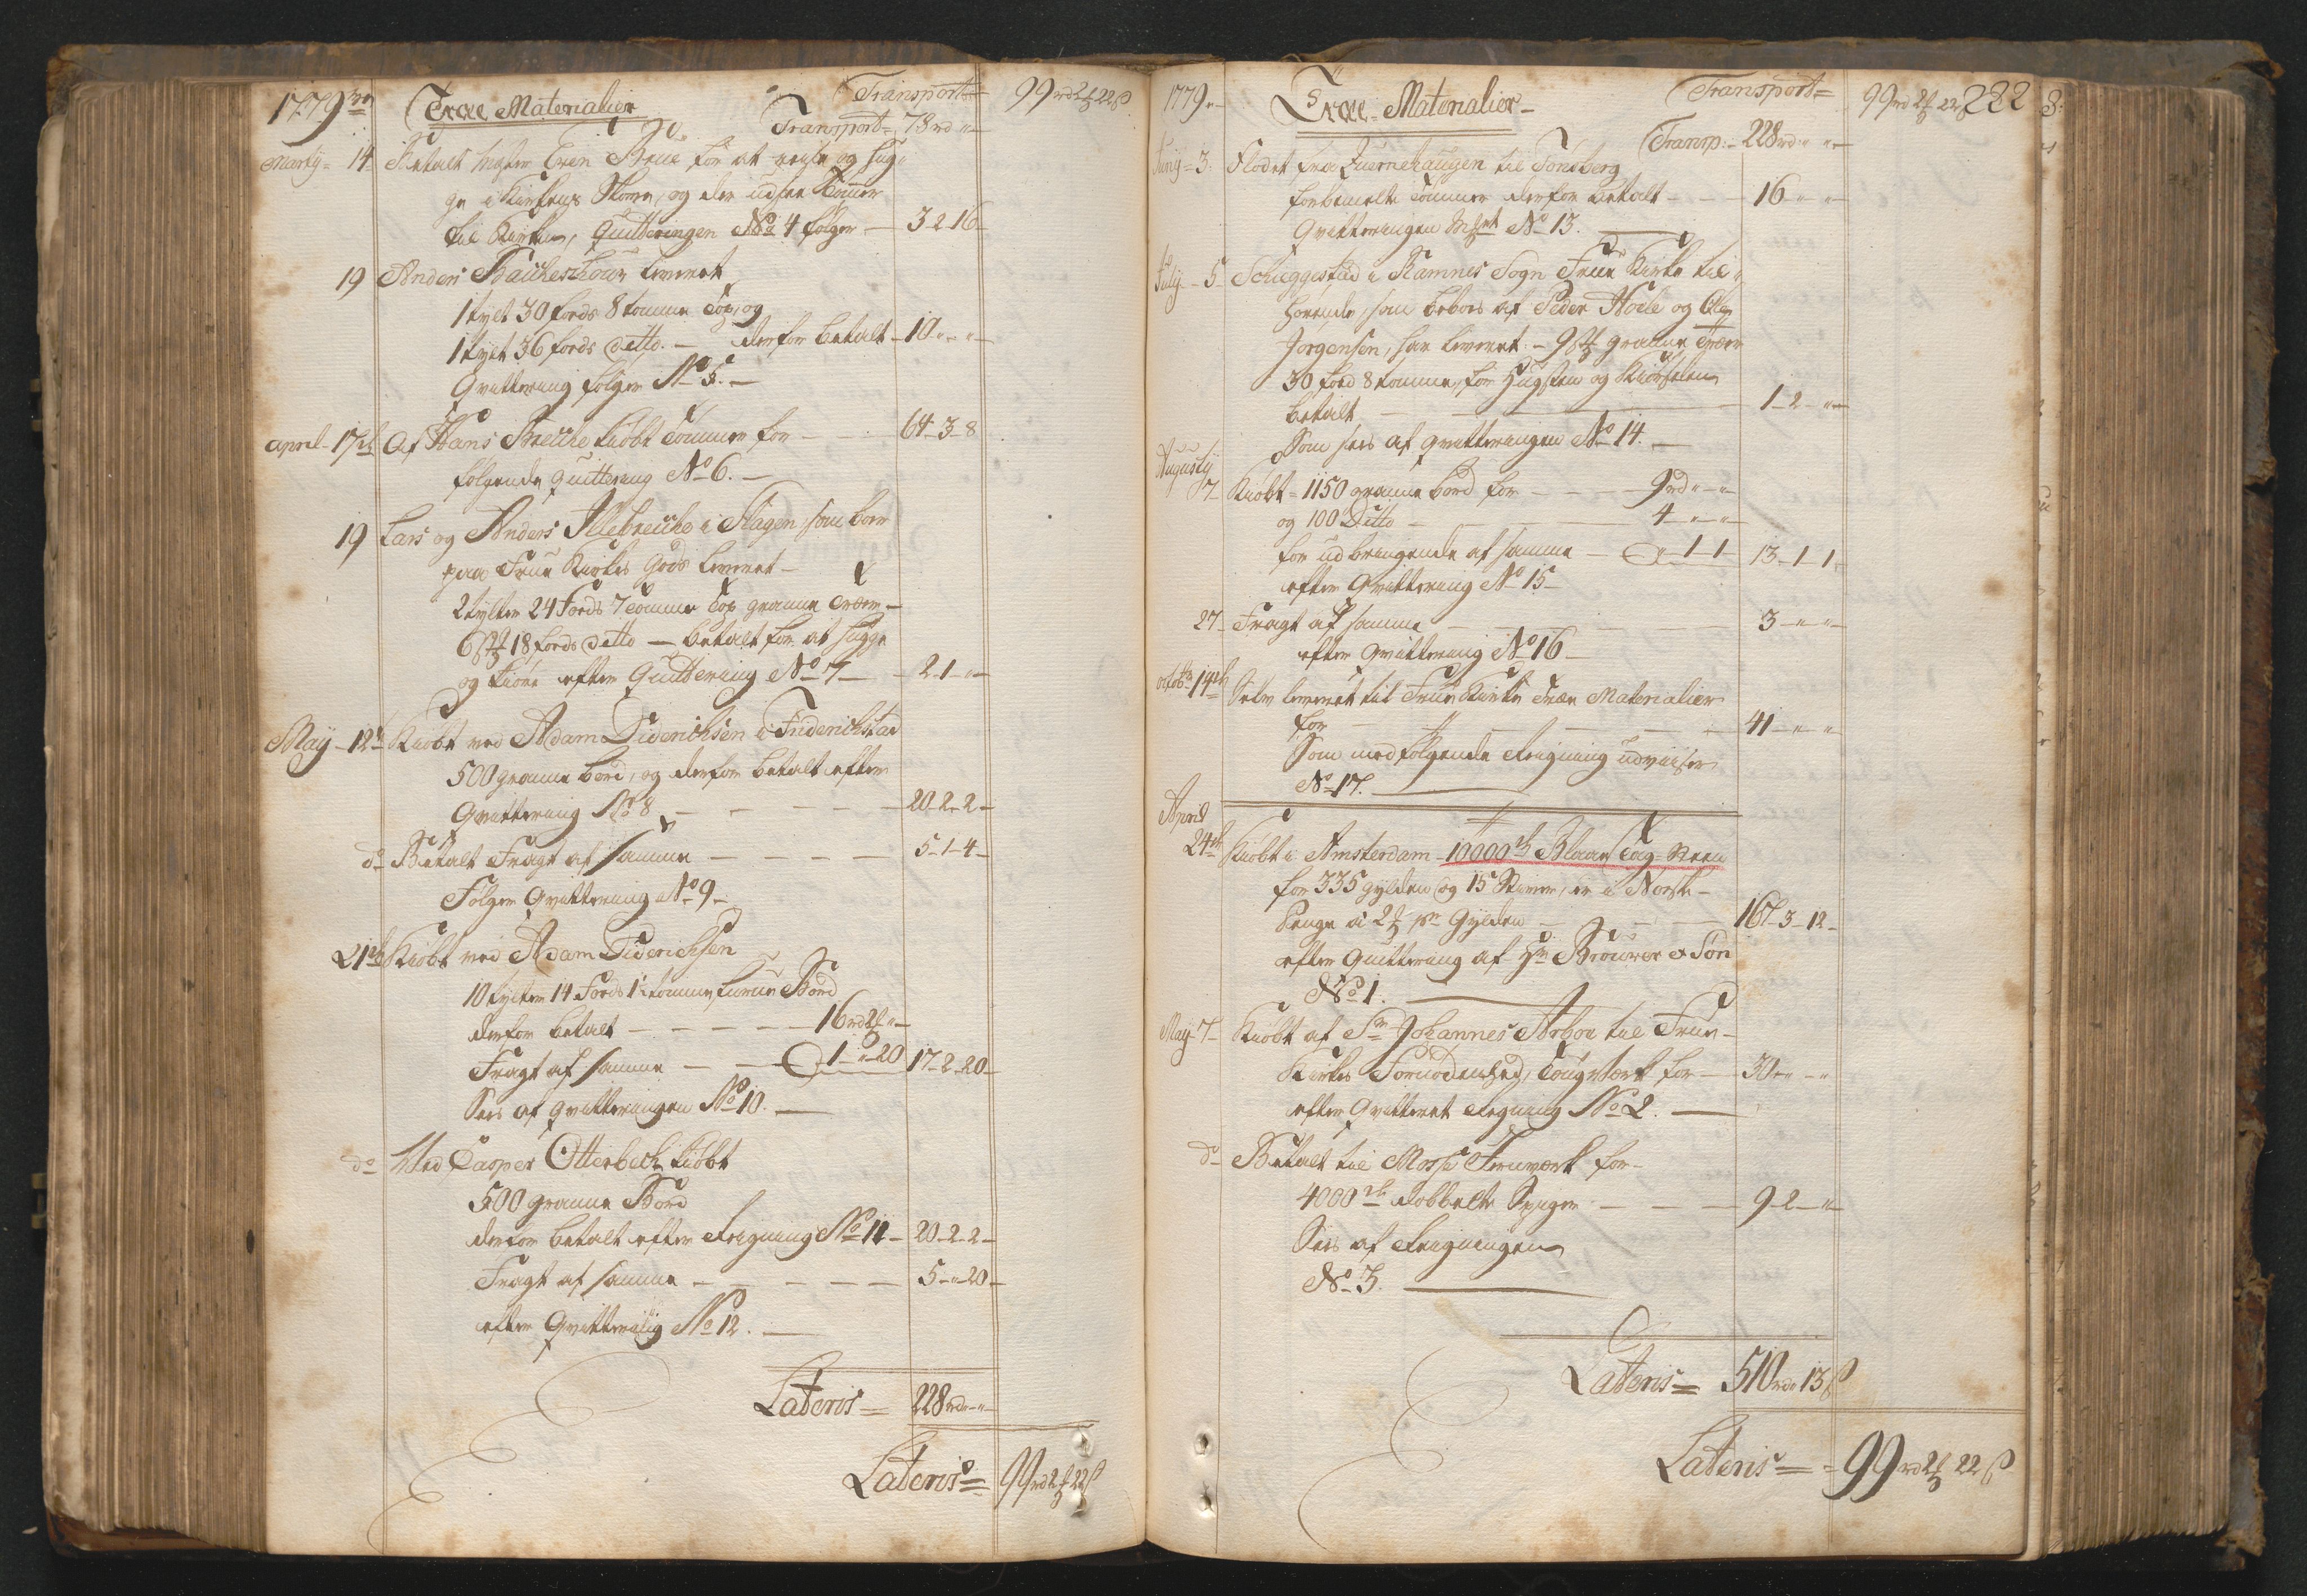 1779
Træ Materialier
Transport
99 rd 2 22 ß
Transport 78 rd
Marty 14 Betalt for at reise og hug-
ge i Kirkens Skove, og der udsee Tømmer
til Kirken, Quitteringen No 4 følger 3-2-16
19 Anders leveret
1 tylt 30 fods 8 tomme Top, og
1 tylt 36 fods Ditto. derfor betalt 10
Qvittering følger No 5.
April 17de Af Hans kiøbt Tømmer for 64-3-8
følgende Quittering No 6.
19 Lars og Anders i Slagen, som boer
paa Frue Kirkes Gods leveret
2 tylter 24 Fods 7 Tomme Top granne Træer
6 18 fods Ditto betalt for at hugge
og kiøre efter Quittering No 7 2-1-"
May 12 Kiøbt ved Adam Diderichsen i Friderichstad
500 granne bord, og derfor betalt efter
Qvittering No 8 20-2-2
do Betalt Fragt af samme 5-1-4
Følger Qvittering No 9
21de Kiøbt ved Adam Diderichsen
10 tylter 14 Fods 1 tomme furue Bord
derfor betalt 16 rd 2
Fragt af samme 1-"-20 17-2-20
Sees af Qvitteringen No 10.
do Ved Casper Otterbech kiøbt
500 granne Bord
derfor betalt efter Reigning No 11 20-2-2
Fragt af samme 5-"-20
efter Qvittering No 12.
Lateris 228 rd
Lateris 99 rd 2 22 ß
1779
Træ Materialier
Transport
99 rd 2 22 ß
222
Transp: 228 rd
Juny 3 Flodet fra til Tønsberg
forbemelte Tømmer derfor betalt 16
Qvitteringen No 13.
July 5 i Ramnes Sogn Frue Kirke til-
hørende, som beboes af Peder Hoele og Ole
Jørgensen, har leveret 9 granne Træer
30 fod 8 tomme, for Hugsten og Kiørselen
betalt 1-2-"
Som sees af Qvitteringen No 14.
Augusty
7 Kiøbt 1150 granne bord for 9 rd
og 100 Ditto 4
for udbringende af samme "-1-1 13-1-1
efter Qvittering No 15
27 Fragt af samme 3
efter Qvittering No 16
octobr 14de Selv leveret til Frue Kirke Træe Materialier
for 41
Som medfølgende Reigning udviiser
No 17.
April
24de Kiøbt i Amsterdam 10000 Blaae Tag-Steen
for 335 gylden og 15 Stiver, er i Norske
Penge a 2 pr Gylden 167-3-12
efter Quittering af Hr Brouwer & Søn
No 1.
May 7 Kiøbt af Sr Johannes Arbou til Frue
Kirkes Fornødenhed, Tougværk for 30
efter Qvitteret Regning No 2.
do Betalt til Moss Jernværk for
4000 dobbelte Spiger 9-2-"
Sees af Reigningen
No 3.
Lateris 510 rd 13 ß
Lateris 99 rd 2 22 ß